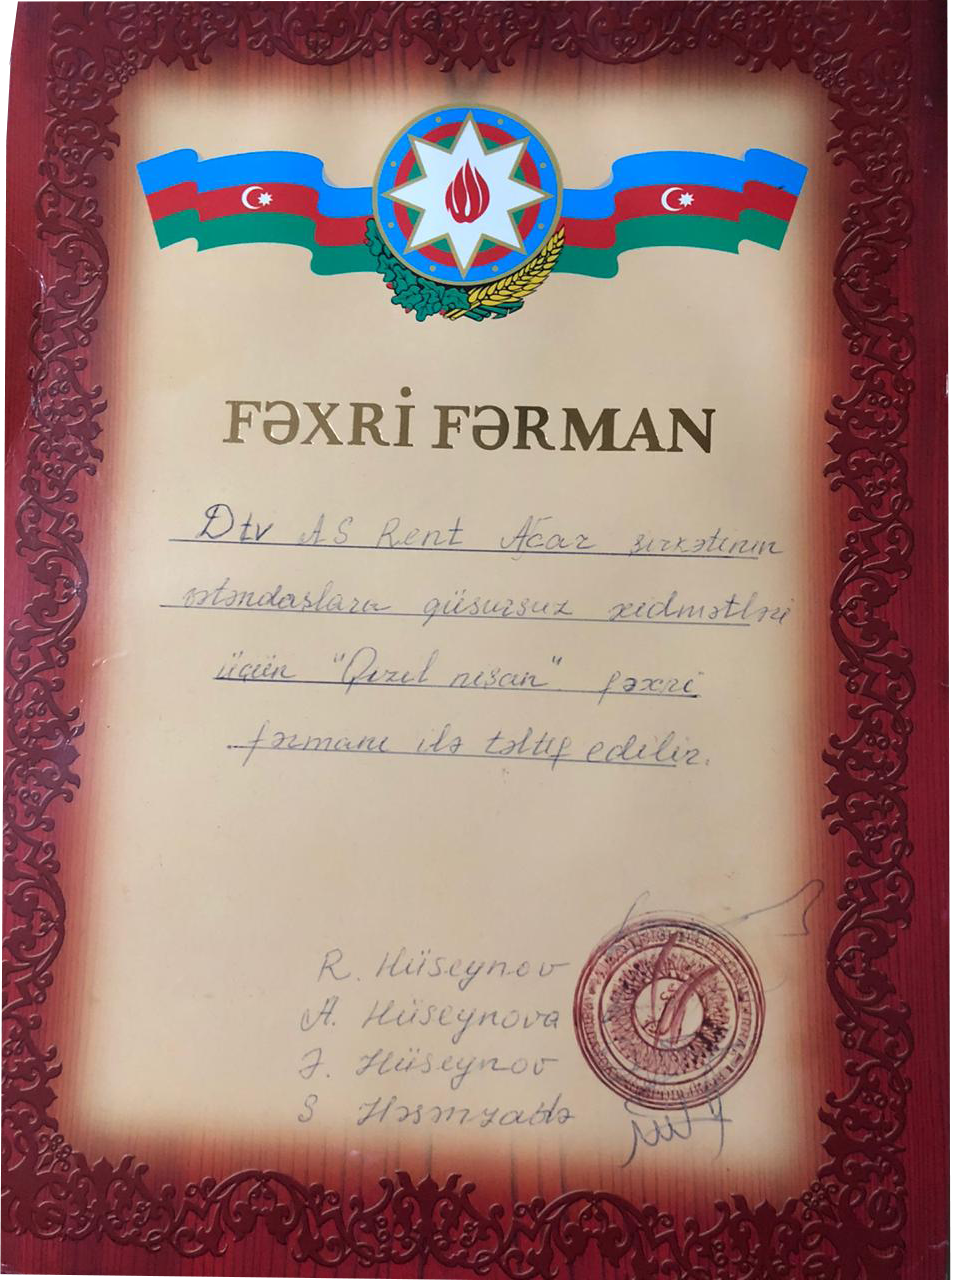 FƏXRİ FƏRMAN
Dtv AS Rent Acar şirkətinin
vətəndaşlara qüsursuz xidmətləri
üçün "Qızıl nişan" fəxri
fərmanı ilə təltif edilir.
R. Hüseynov
A. Hüseynova
Hüseynov
S